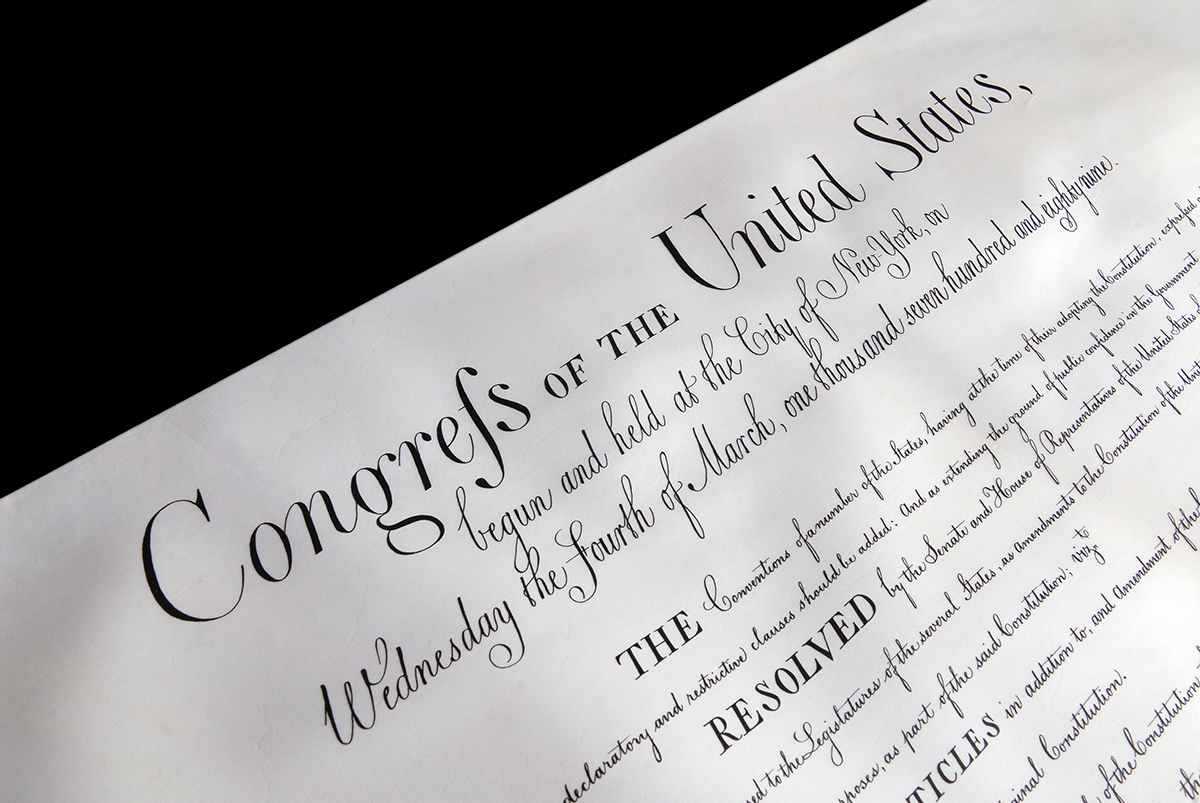 Congreſs OF THE United States,
begun and held at the City of New-York, on
Wednesday the Fourth of March, one thousand seven hundred and eighty nine.
THE Conventions of a number of the States, having at the time of their adopting the Constitution, expreſsed a
declaratory and restrictive clauses should be added: And as extending the ground of public confidence in the Government
RESOLVED by the Senate and House of Representatives of the United States
ed to the Legislatures of the several States, as amendments to the Constitution of the Unit
poses, as part of the said Constitution; viz.t
TICLES in addition to, and Amendment of the
inal Constitution.
of the Constitution
the